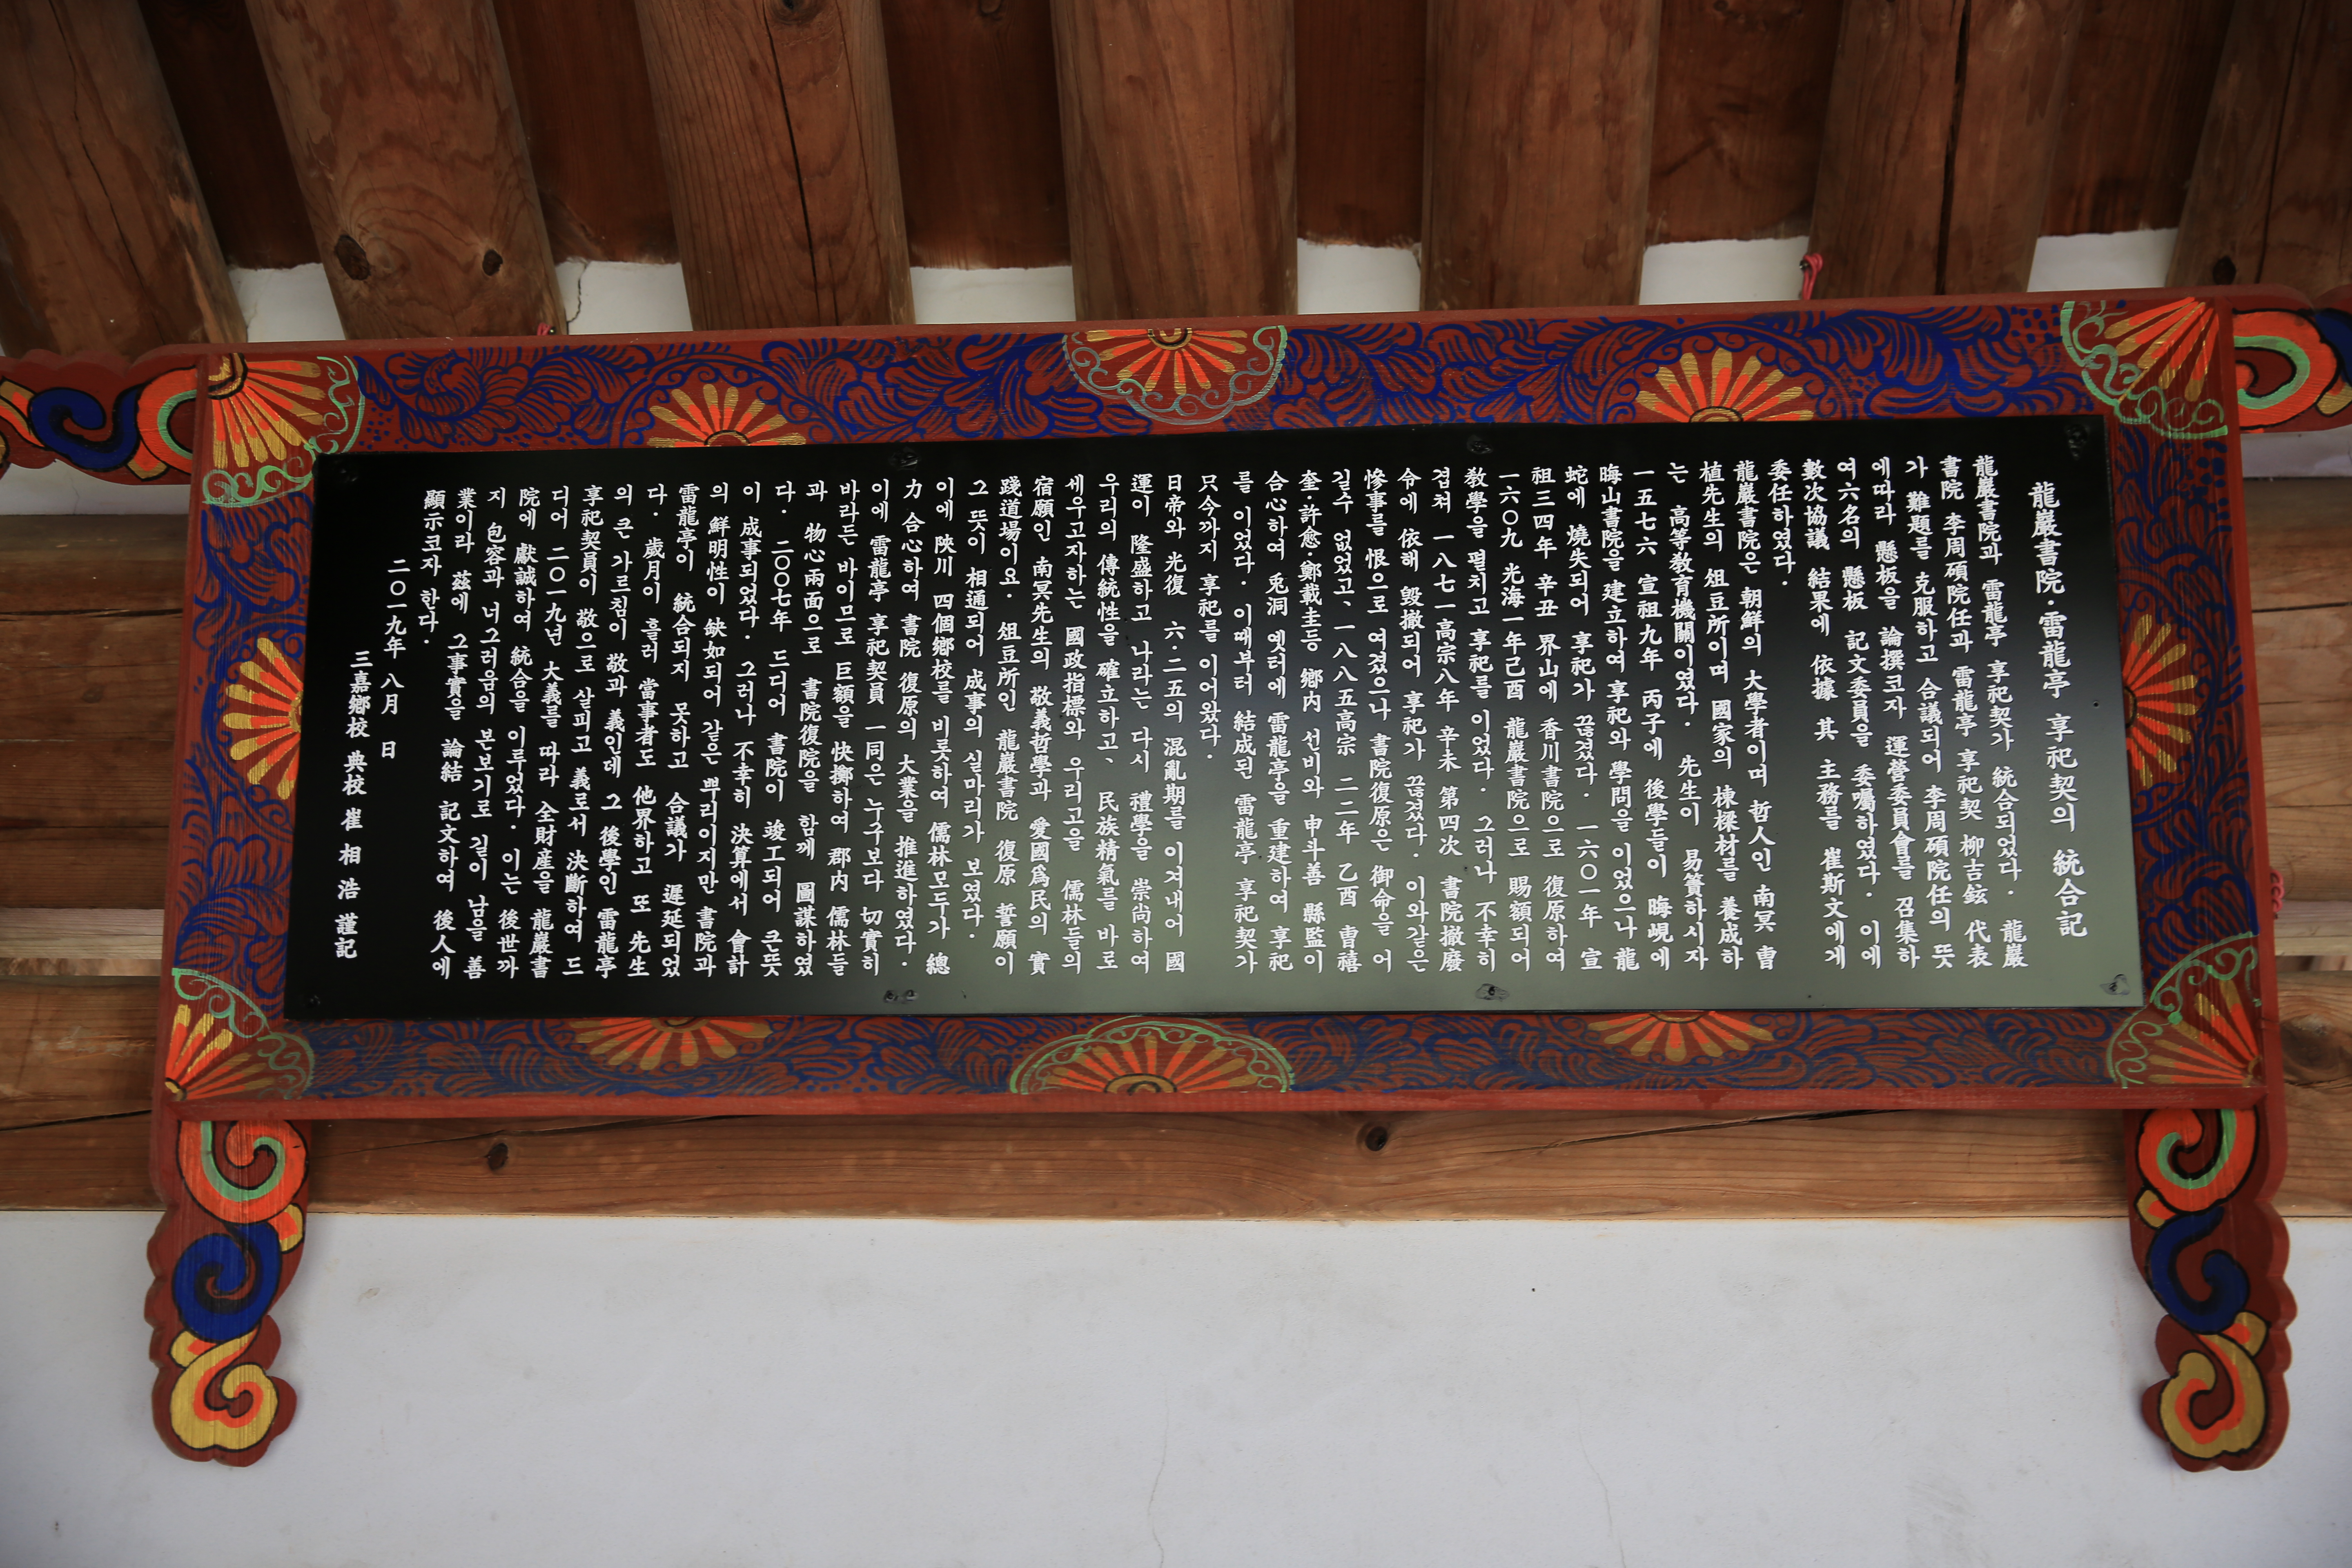 龍巖書院·雷龍亭 享祀契의 統合記
龍巖書院과 雷龍亭 享祀契가 統合되었다. 龍巖
書院 李周碩院任과 雷龍亭 享祀契 柳吉鉉 代表
가 難題를 克服하고 合議되어 李周碩院任의 뜻
에따라 懸板을 論撰코자 運營委員會를 召集하
여 六名의 懸板 記文委員을 委囑하였다. 이에
數次協議 結果에 依據 其 主務를 崔斯文에게
委任하였다.
龍巖書院은 朝鮮의 大學者이며 哲人인 南冥 曺
植先生의 俎豆所이며 國家의 棟樑材를 養成하
는 高等敎育機關이였다. 先生이 易簀하시자
一五七六 宣祖九年 丙子에 後學들이 晦峴에
晦山書院을 建立하여 享祀와 學問을 이었으나 龍
蛇에 燒失되어 享祀가 끊겼다. 一六〇一年 宣
祖三四年 辛丑 界山에 香川書院으로 復原하여
一六〇九 光海一年己酉 龍巖書院으로 賜額되어
敎學을 펼치고 享祀를 이었다. 그러나 不幸히
겹쳐 一八七一高宗八年 辛未 第四次 書院撤廢
令에 依해 毁撤되어 享祀가 끊겼다. 이와같은
慘事를 恨으로 여겼으나 書院復原은 御命을 어
길수 없었고、一八八五高宗 二二年 乙酉 曺禧
奎·許愈·鄭載圭등 鄕內 선비와 申斗善 縣監이
合心하여 兎洞 옛터에 雷龍亭을 重建하여 享祀
를 이었다. 이때부터 結成된 雷龍亭 享祀契가
只今까지 享祀를 이어왔다.
日帝와 光復 六·二五의 混亂期를 이겨내어 國
運이 隆盛하고 나라는 다시 禮學을 崇尙하여
우리의 傳統性을 確立하고、民族精氣를 바로
세우고자하는 國政指標와 우리고을 儒林들의
宿願인 南冥先生의 敬義哲學과 愛國爲民의 實
踐道場이요. 俎豆所인 龍巖書院 復原 誓願이
그 뜻이 相通되어 成事의 실마리가 보였다.
이에 陜川 四個鄕校를 비롯하여 儒林모두가 總
力 合心하여 書院 復原의 大業을 推進하였다.
이에 雷龍亭 享祀契員 一同은 누구보다 切實히
바라든 바이므로 巨額을 快擲하여 郡內 儒林들
과 物心兩面으로 書院復院을 함께 圖謀하였
다. 二〇〇七年 드디어 書院이 竣工되어 큰뜻
이 成事되었다. 그러나 不幸히 決算에서 會計
의 鮮明性이 缺如되어 같은 뿌리이지만 書院과
雷龍亭이 統合되지 못하고 合議가 遲延되었
다. 歲月이 흘러 當事者도 他界하고 또 先生
의 큰 가르침이 敬과 義인데 그 後學인 雷龍亭
享祀契員이 敬으로 살피고 義로서 決斷하여 드
디어 二〇一九년 大義를 따라 全財産을 龍巖書
院에 獻誠하여 統合을 이루었다. 이는 後世까
지 包容과 너그러움의 본보기로 길이 남을 善
業이라 玆에 그事實을 論結 記文하여 後人에
顯示코자 한다.
二〇一九年 八月 日
三嘉鄕校 典校 崔相浩 謹記